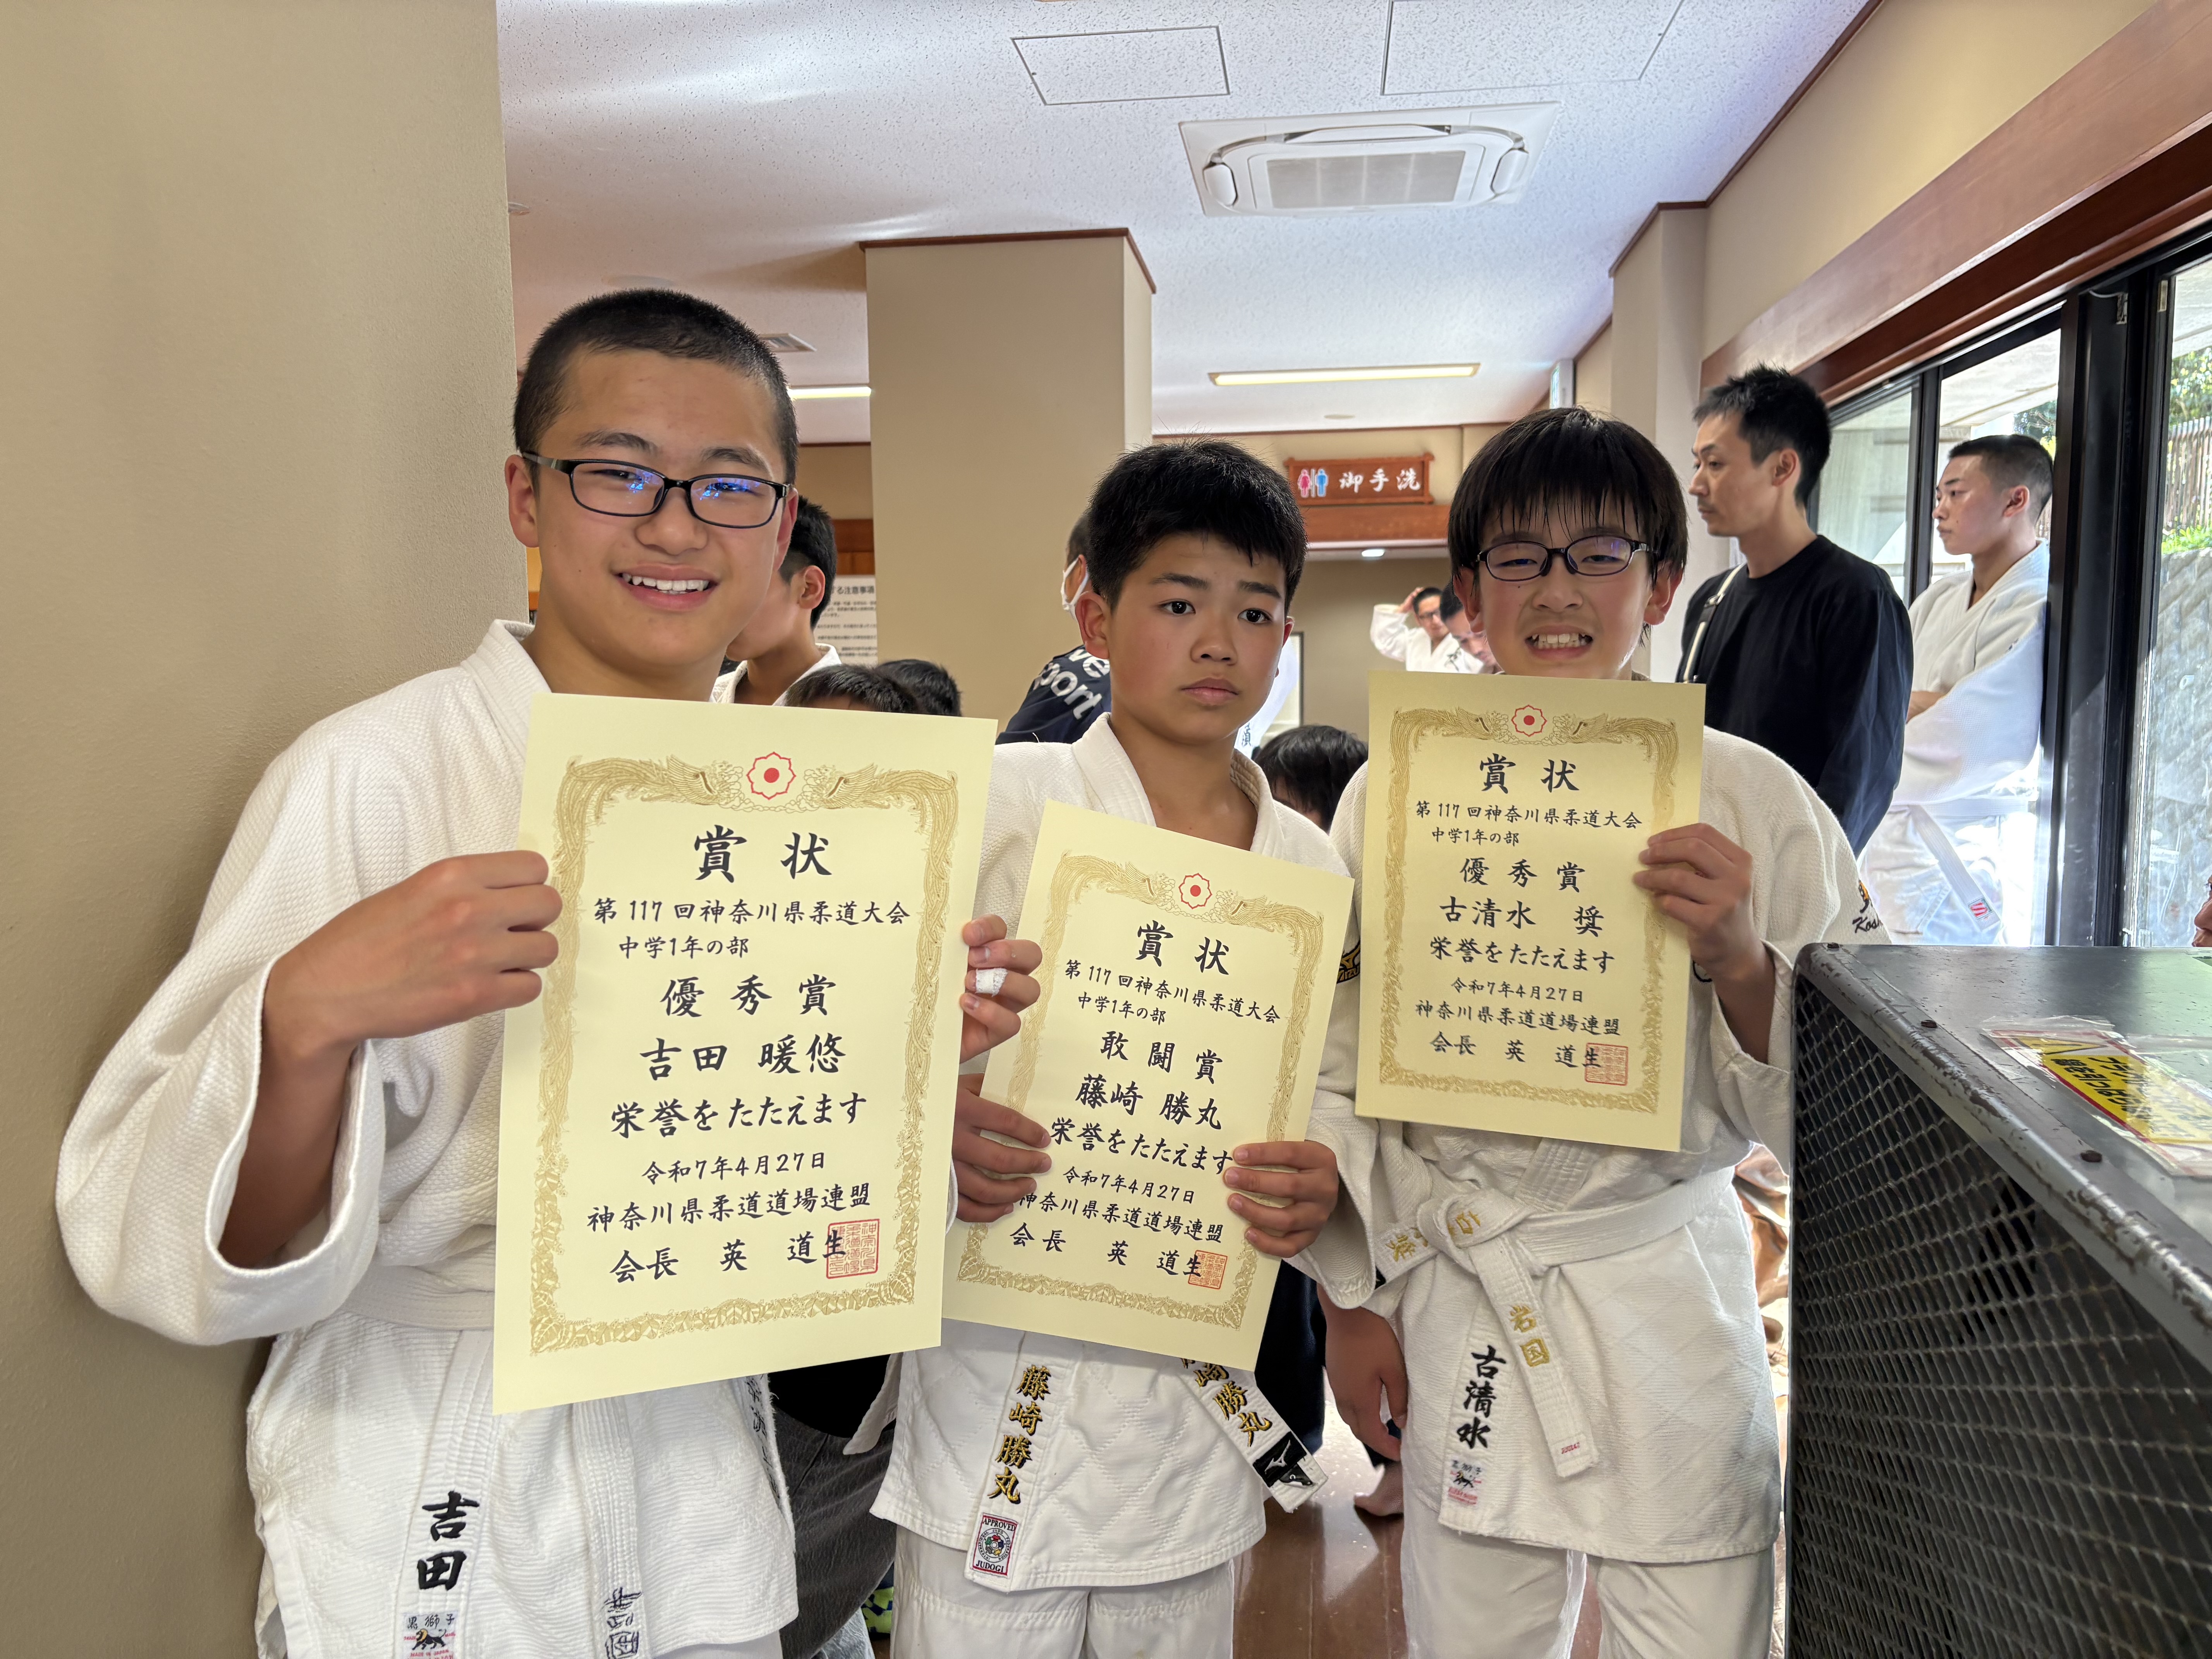 御手洗
する注意事項
賞状
第117回神奈川県柔道大会
中学1年の部
優秀賞
吉田 暖悠
栄誉をたたえます
令和7年4月27日
神奈川県柔道道場連盟
会長 英 道生
吉田
黒獅子
賞状
第117回神奈川県柔道大会
中学1年の部
敢闘賞
藤崎 勝丸
栄誉をたたえます
令和7年4月27日
神奈川県柔道道場連盟
会長 英 道生
藤崎勝丸
APPROVED
JUDOGI
崎勝丸
賞状
第117回神奈川県柔道大会
中学1年の部
優秀賞
古清水 奨
栄誉をたたえます
令和7年4月27日
神奈川県柔道道場連盟
会長 英 道生
岩国
古清水
黒獅子